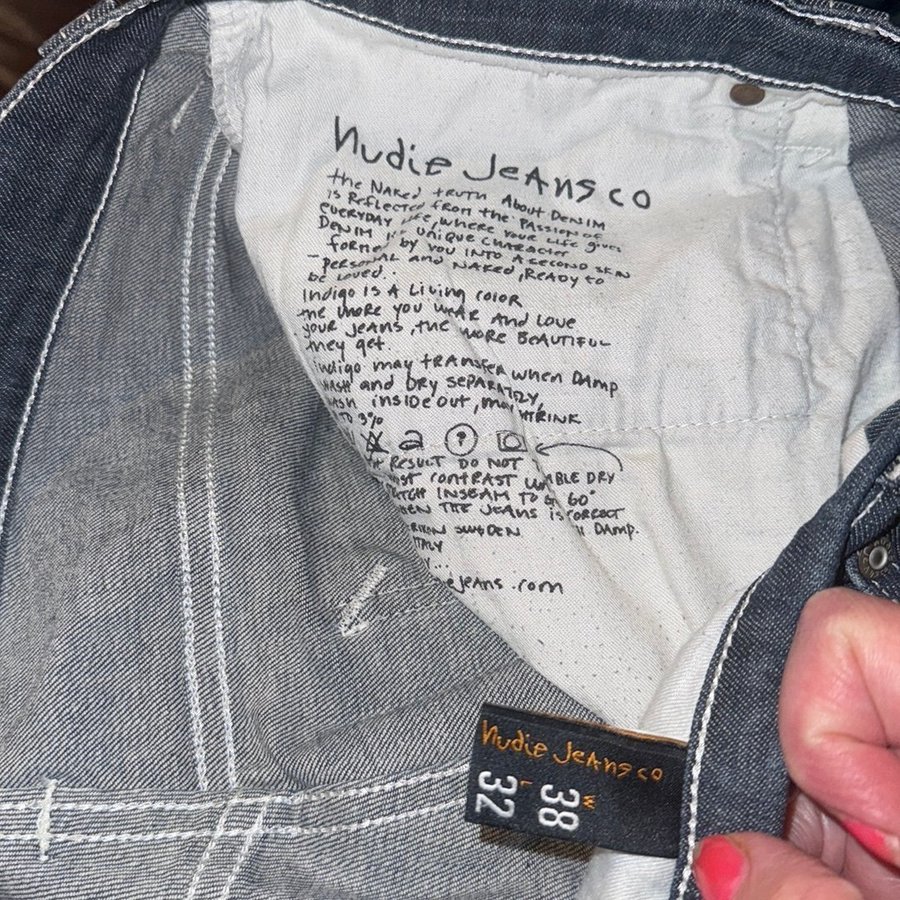 Nudie Jeans co
the NAKed tRUTH About DENIM
is Reflected from the PASSION of
EVERYDAY Life, where your Life gives
DENIM UNIQUE CHARACTER
formed by you INTO A SECOND SKIN
- PERSONAL AND NAKED, READY to
be loved.
Indigo IS A Living COLOR
the more you WEAR AND LOVE
your JEANS, the MORE BEAUTIFUL
they get.
Indigo may tRANSFER when DAMP
WASH and DRY SEPARATELY,
WASH insideout, may SHRINK
TO 3%
RESULT DO NOT
CONTRAST UMBLE DRY
INSEAM TO 60°
THE JEANS IS CORRECT
SWEDEN DAMP.
ITALY
eJeans.com
Nudie Jeans co
L W
32 38